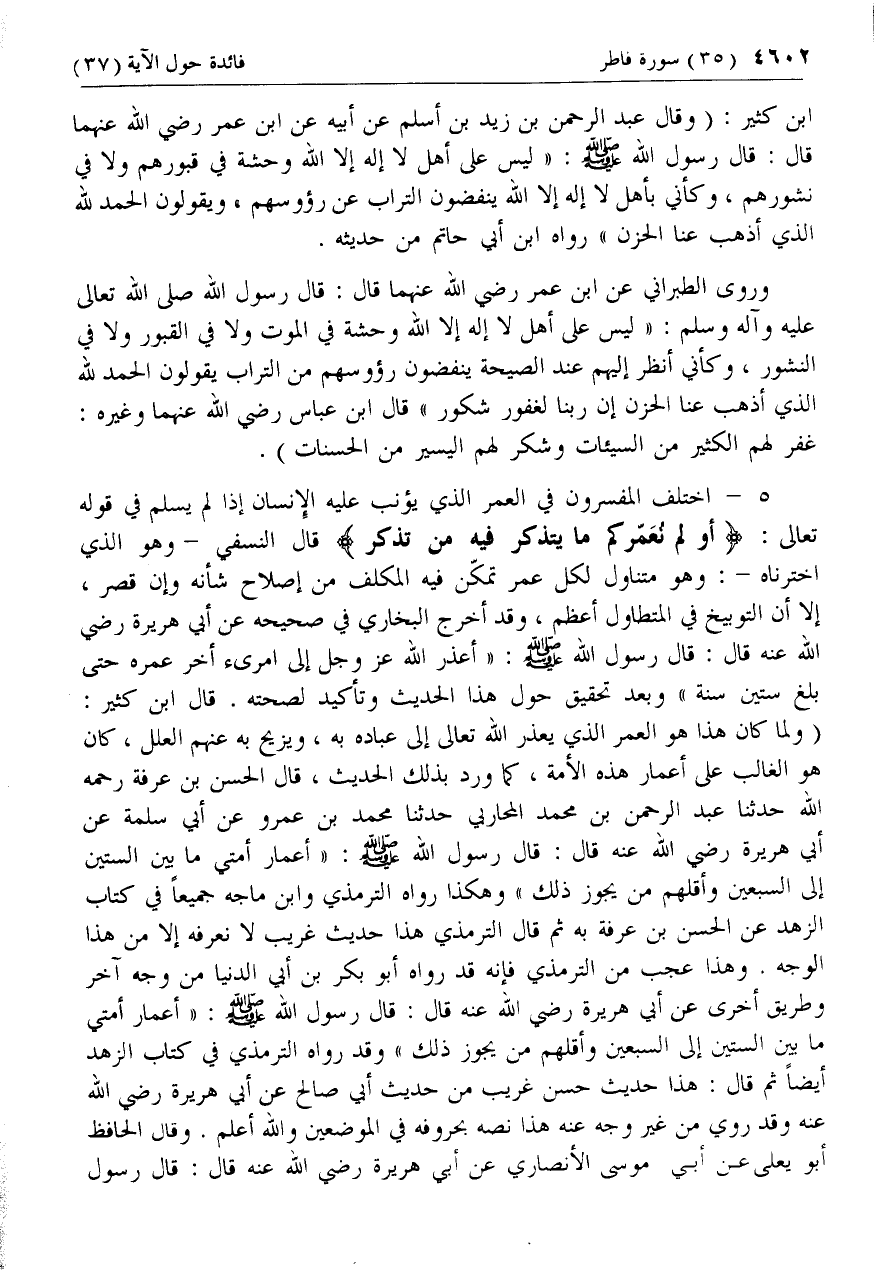 ٤٦٠٢ (٣٥) سورة فاطر فائدة حول الآية (٣٧)
ابن كثير : ( وقال عبد الرحمن بن زيد بن أسلم عن أبيه عن ابن عمر رضي الله عنهما
قال : قال رسول الله ﷺ : « ليس على أهل لا إله إلا الله وحشة في قبورهم ولا في
نشورهم ، وكأني بأهل لا إله إلا الله ينفضون التراب عن رؤوسهم ، ويقولون الحمد لله
الذي أذهب عنا الحزن » رواه ابن أبي حاتم من حديثه .
وروى الطبراني عن ابن عمر رضي الله عنهما قال : قال رسول الله صلى الله تعالى
عليه وآله وسلم : « ليس على أهل لا إله إلا الله وحشة في الموت ولا في القبور ولا في
النشور ، وكأني أنظر إليهم عند الصيحة ينفضون رؤوسهم من التراب يقولون الحمد لله
الذي أذهب عنا الحزن إن ربنا لغفور شكور » قال ابن عباس رضي الله عنهما وغيره :
غفر لهم الكثير من السيئات وشكر لهم اليسير من الحسنات ) .
٥ – اختلف المفسرون في العمر الذي يؤنب عليه الإنسان إذا لم يسلم في قوله
تعالى : ﴿ أو لم نُعَمّركم ما يتذكر فيه من تذكر ﴾ قال النسفي – وهو الذي
اخترناه – : وهو متناول لكل عمر تمكّن فيه المكلف من إصلاح شأنه وإن قصر ،
إلا أن التوبيخ في المتطاول أعظم ، وقد أخرج البخاري في صحيحه عن أبي هريرة رضي
الله عنه قال : قال رسول الله ﷺ : « أعذر الله عز وجل إلى امرىء أخر عمره حتى
بلغ ستين سنة » وبعد تحقيق حول هذا الحديث وتأكيد لصحته . قال ابن كثير :
( ولما كان هذا هو العمر الذي يعذر الله تعالى إلى عباده به ، ويزيح به عنهم العلل ، كان
هو الغالب على أعمار هذه الأمة ، كما ورد بذلك الحديث ، قال الحسن بن عرفة رحمه
الله حدثنا عبد الرحمن بن محمد المحاربي حدثنا محمد بن عمرو عن أبي سلمة عن
أبي هريرة رضي الله عنه قال : قال رسول الله ﷺ : « أعمار أمتي ما بين الستين
إلى السبعين وأقلهم من يجوز ذلك » وهكذا رواه الترمذي وابن ماجه جميعاً في كتاب
الزهد عن الحسن بن عرفة به ثم قال الترمذي هذا حديث غريب لا نعرفه إلا من هذا
الوجه . وهذا عجب من الترمذي فإنه قد رواه أبو بكر بن أبي الدنيا من وجه آخر
وطريق أخرى عن أبي هريرة رضي الله عنه قال : قال رسول الله ﷺ : « أعمار أمتي
ما بين الستين إلى السبعين وأقلهم من يجوز ذلك » وقد رواه الترمذي في كتاب الزهد
أيضاً ثم قال : هذا حديث حسن غريب من حديث أبي صالح عن أبي هريرة رضي الله
عنه وقد روي من غير وجه عنه هذا نصه بحروفه في الموضعين والله أعلم . وقال الحافظ
أبو يعلى عن أبي موسى الأنصاري عن أبي هريرة رضي الله عنه قال : قال رسول